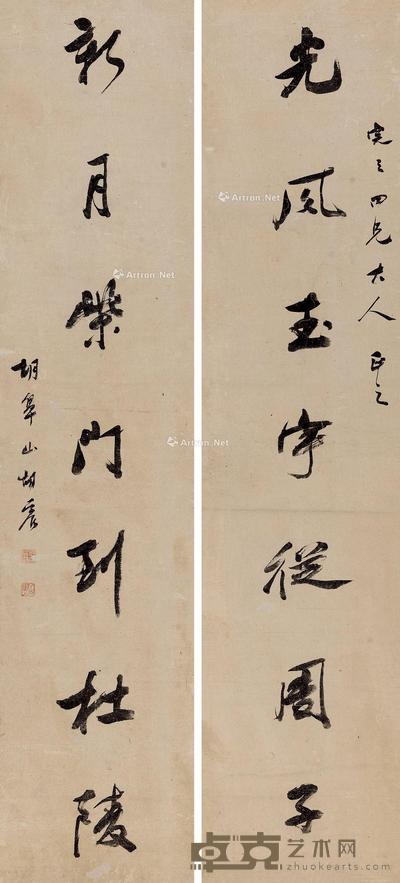 之四兄大人正之
光風玉宇從周子
新月柴門到杜陵
胡鼻山胡震
Artron.Net
Artron.Net
Artron.Net
Artron.Net
卓克艺术网
zhuokearts.com